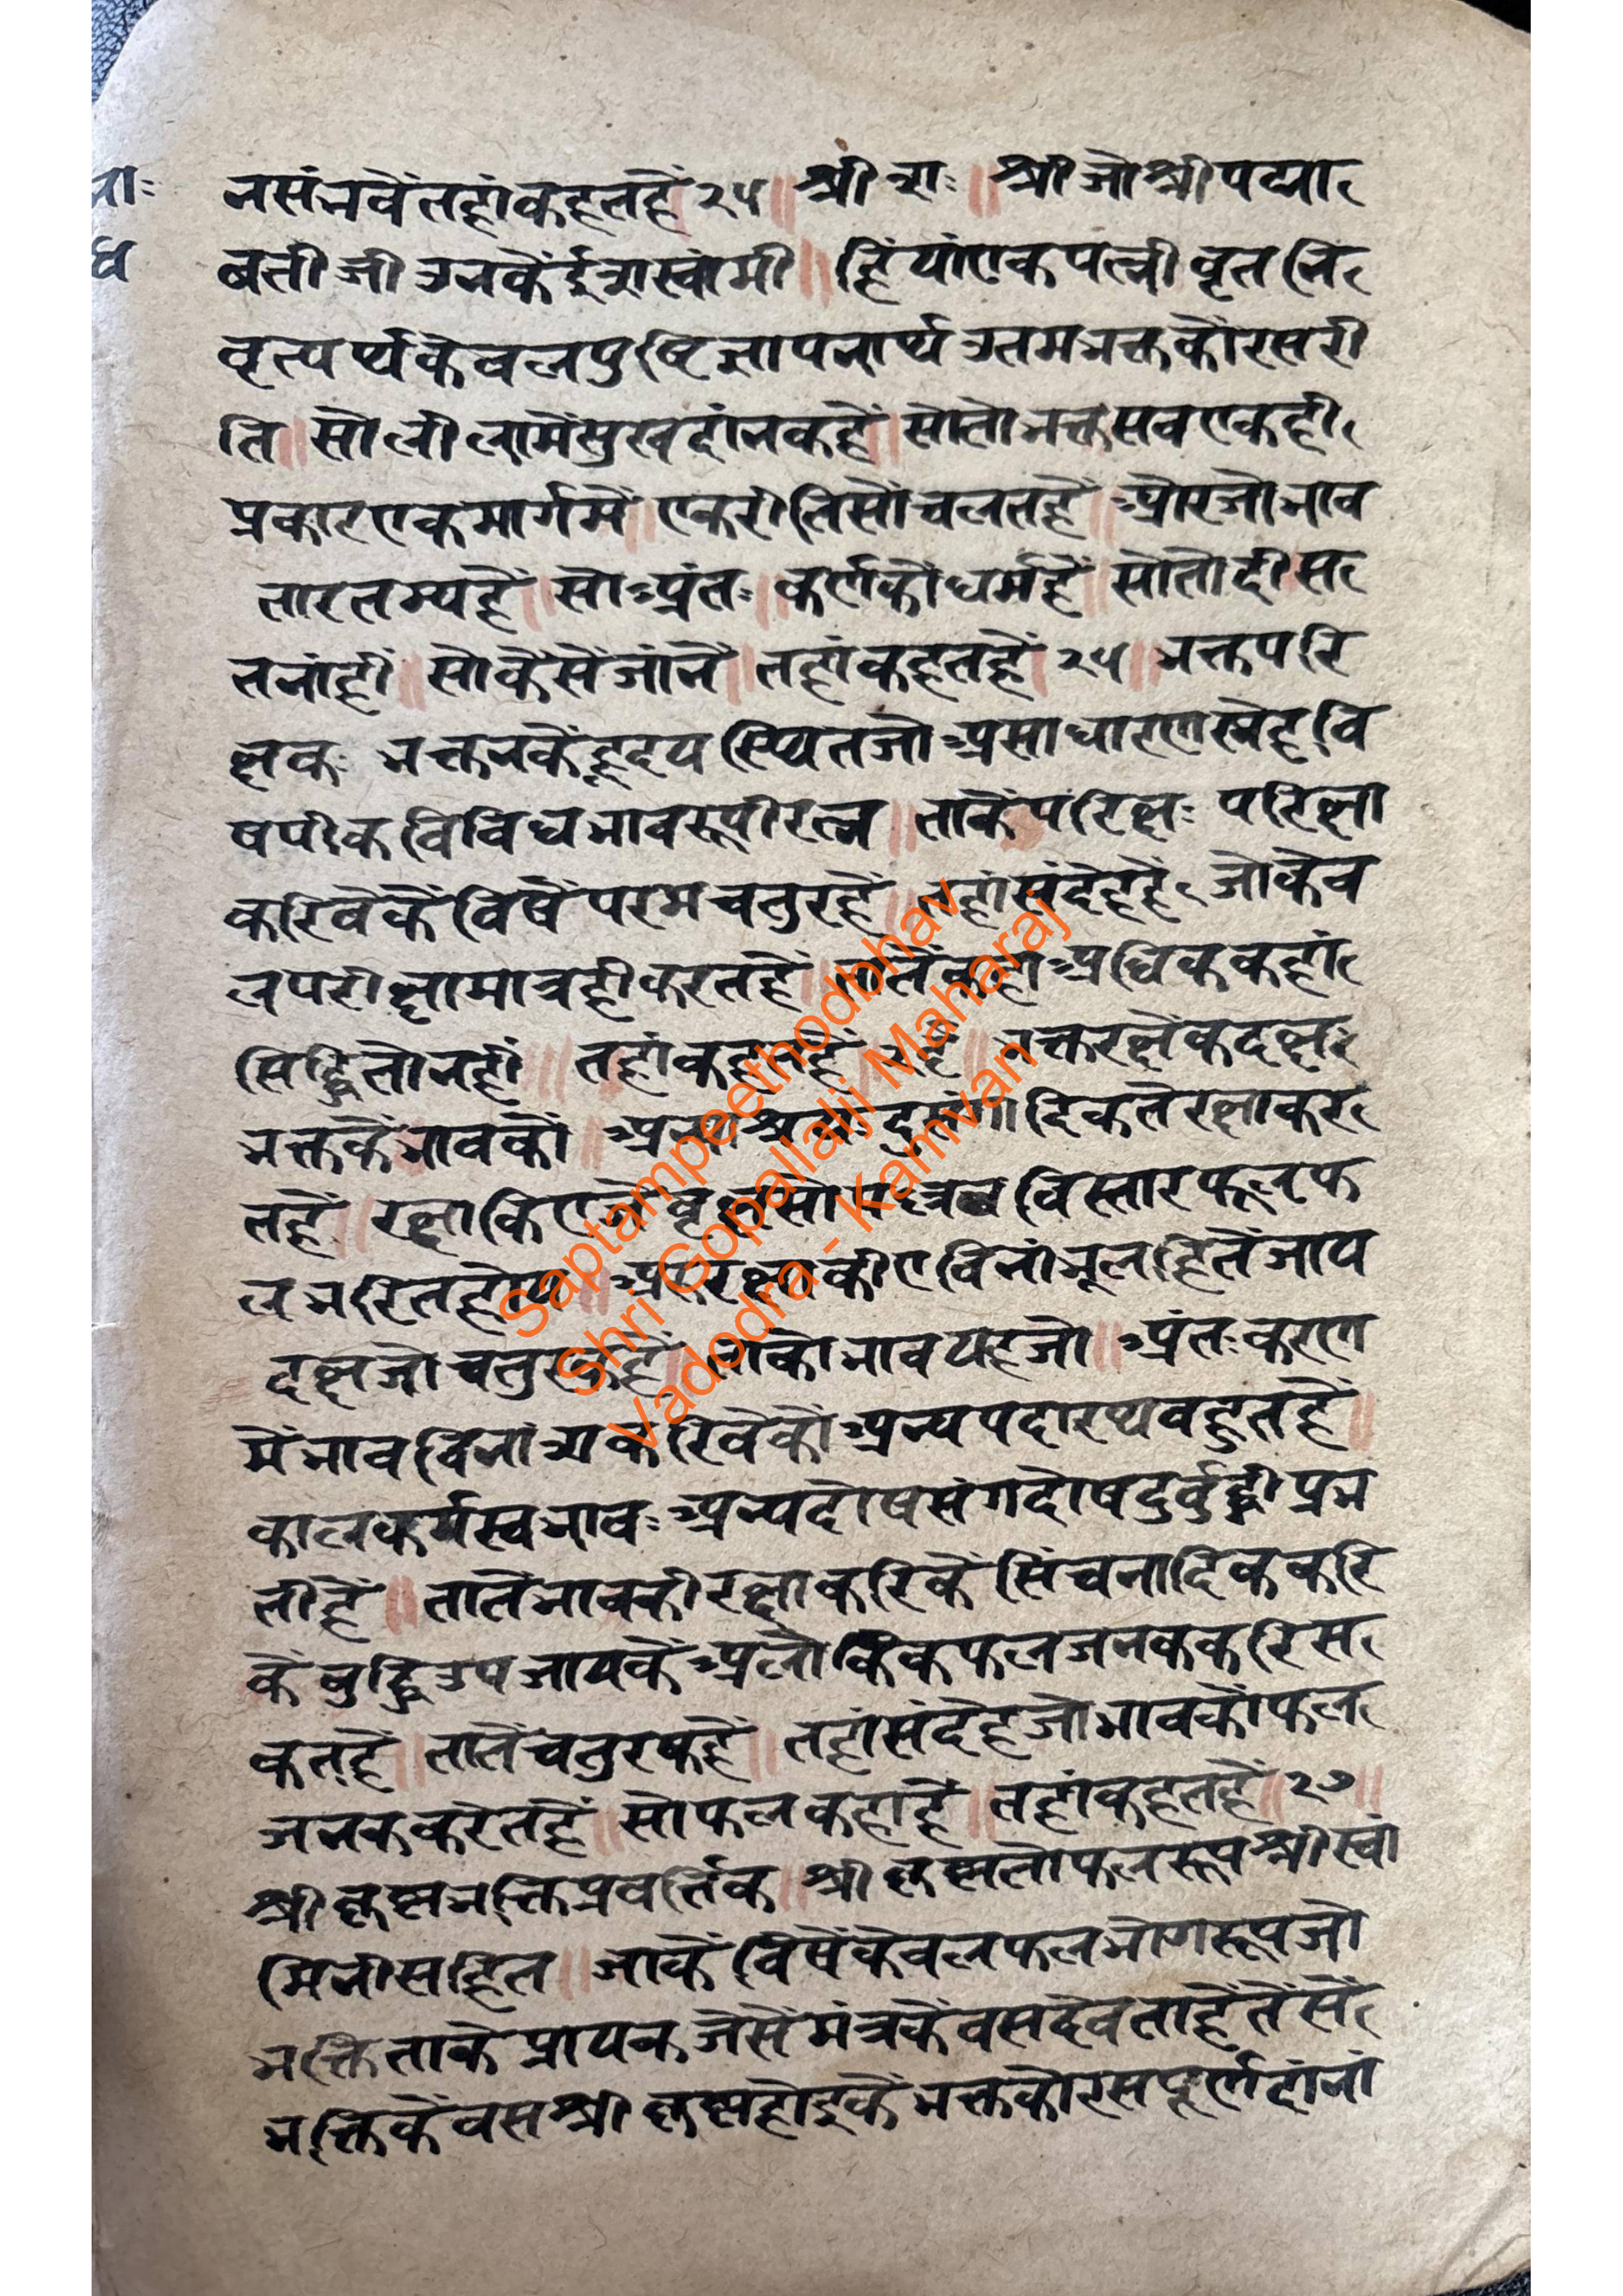 नसंभवें तहां कहत हें २५ ॥ श्री शः ॥ श्री जो श्री पद्मा
वती जी उनकें ईशः स्वांमी ॥ हियां एक पत्नी वृत नि
वृत्यर्थ केवल पुष्टि ज्ञापनार्थ उतम भक्त कों रस री
ति ॥ सो लीला में सुख दांनक हें ॥ सो तो भक्त सव एक ही
प्रकार एक मार्ग में ॥ एक रीति सों चलत हें ॥ और जो भाव
तारतम्य हें ॥ सो अंतः ॥ कर्ण को धर्म हें ॥ सो तो दीस
त नांहीं ॥ सो कैसें जांनें ॥ तहां कहत हें २५ ॥ भक्त परि
क्षक: भक्तन कें हृदय स्थित जो असाधारण स्नेह वि
षयीक विविध भाव रूपी रत्न ॥ ताकें परिक्ष: परिक्षा
करिवे कें विषें परम चतुर हें ॥ तहां संदेह हें जो केव
ल परीक्षा मात्र ही करत हें ॥ तातें कहा अधिक कहां
सिद्धि तो नहीं ॥ तहां कहत हें २६ ॥ भक्त रक्षेक दक्ष:
भक्त कें भाव कों ॥ अन्याश्रय दुसंगादिक तें रक्षा कर
त हें ॥ रक्षा किए जैं वृक्ष सों पत्रव विस्तार फूल फ
ल भरित होय ॥ और रक्षा कीए विनां मूल हि तें जाय
दक्ष जो चतुरक हें ॥ ताको भाव यह जो ॥ अंतःकरण
में भाव विनां श करिवे कों अन्य पदारथ वहुत हें ॥
काल कर्म स्वभाव: अन्य दोष संग दोष दुर्वुद्धी प्रभ
ती हें ॥ तातें भाव की रक्षा करिकें सिंचनादिक करि
कें वुद्धि उपजाय कें अलौकिक फल जनक करि स
कत हें ॥ तातें चतुरक हें ॥ तहां संदेह जो भाव कों फल
जनक करत हें ॥ सो फल कहा हें ॥ तहां कहत हें ॥ २७ ॥
श्री कृष्ण भक्ति प्रवर्त्तिक ॥ श्री कृष्ण तो फल रूप श्री स्वा
मिनी सहित ॥ जाकें विषें केवल फल भोग रूप जो
भक्ति ताके प्रायक जैसें मंत्र कें वस देवता हें तैं सें
भक्ति कें वस श्री कृष्ण होइ कें भक्त को रस पूर्ण दांनां